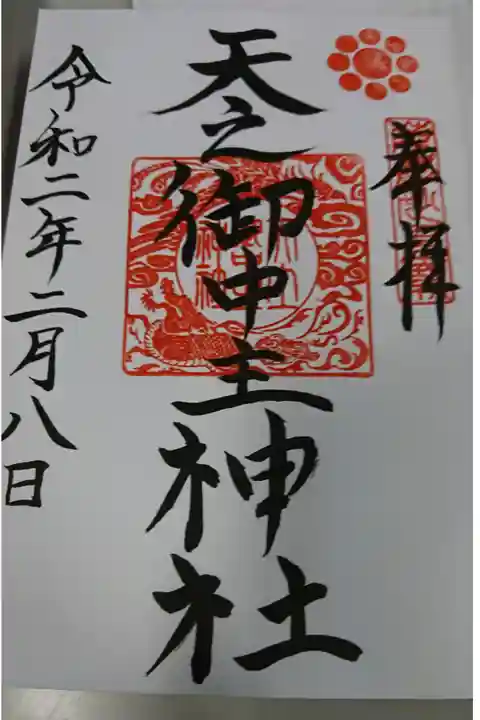 奉拝
天之御中主神社
令和二年二月八日